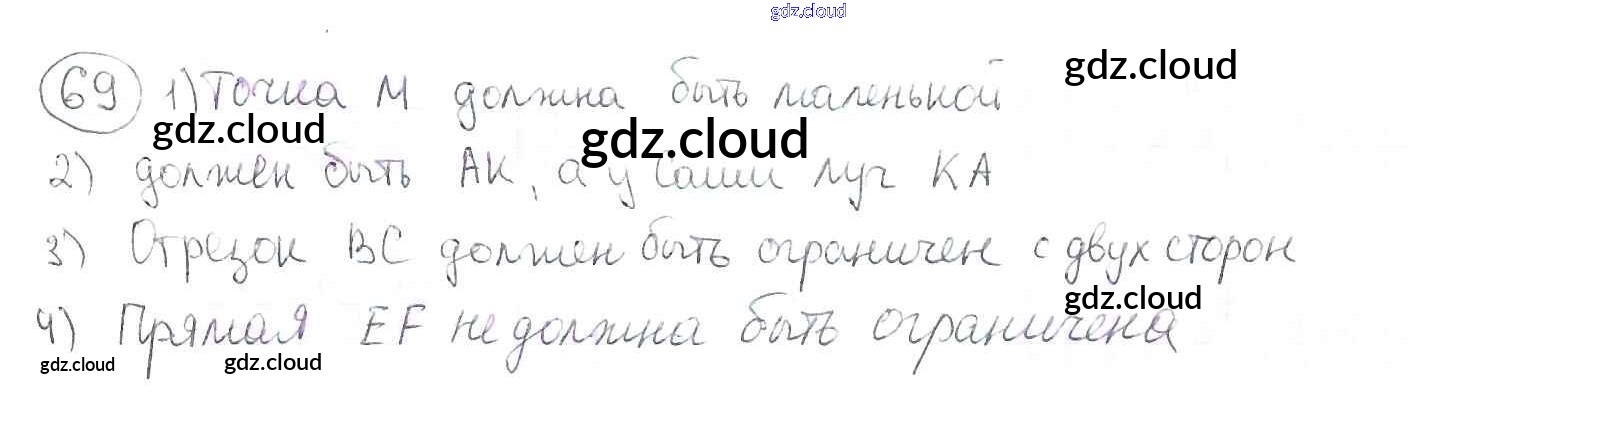 gdz.cloud
69 1) Точка М должна быть маленькой gdz.cloud
gdz.cloud gdz.cloud
2) должен быть АК, а у Саши луч КА
3) Отрезок ВС должен быть ограничен с двух сторон
gdz.cloud
4) Прямая EF не должна быть ограничена
gdz.cloud gdz.cloud